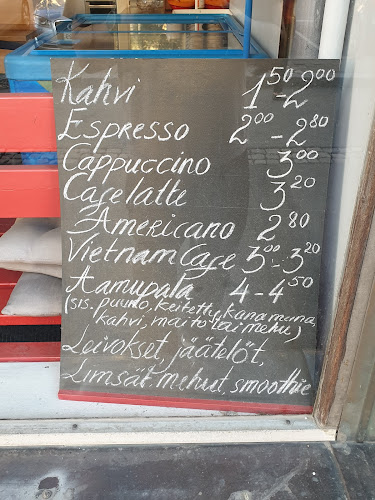 Kahvi 1⁵⁰-2⁰⁰
Espresso 2⁰⁰ - 2⁸⁰
Cappuccino 3⁰⁰
Cafe latte 3²⁰
Americano 2⁸⁰
Vietnam Cafe 3⁰⁰ - 3²⁰
Aamupala 4 - 4⁵⁰
(sis. puuro, keitetty kananmuna,
kahvi, maito tai mehu)
Leivokset, jäätelöt,
Limsat, mehut, smoothie